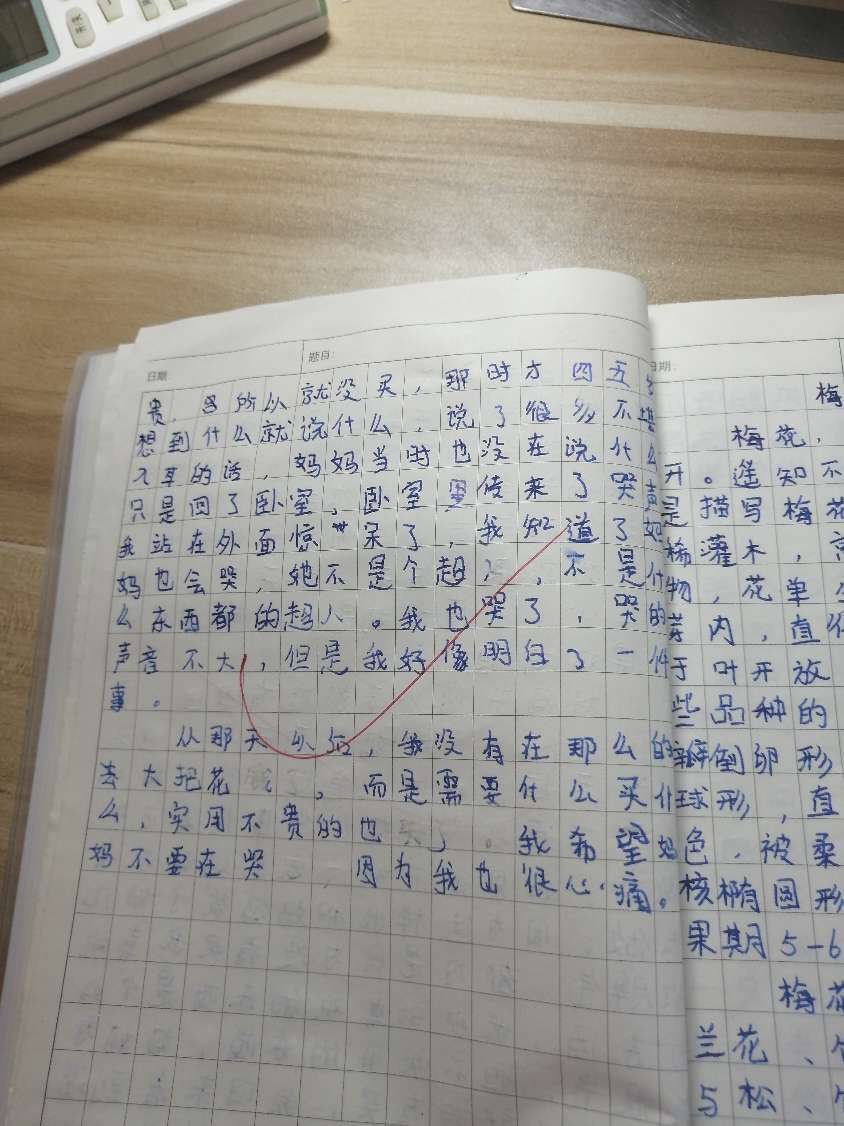 日期:
题目:
贵,所以就没买,那时才四五
想到什么就说什么,说了很多不堪
入耳的话,妈妈当时也没在说什么
只是回了卧室,卧室里传来了哭声
我站在外面惊呆了,我知道了妈
妈也会哭,她不是个超人,不是什
么东西都的超人。我也哭了,哭的
声音不大,但是我好像明白了一件
事。
从那天以后,我没有在那么的
去大把花了,而是需要什么买什
么,实用不贵的也买了。我希望妈
妈不要在哭了,因为我也很心痛。
日期:
梅
梅花,
开。遥知不
是描写梅花
稀灌木,
物,花单
内,直径
于叶开放
些品种的
瓣倒卵形
球形,直
色,被柔
核椭圆形
果期5-6
梅花
兰花、
5松、